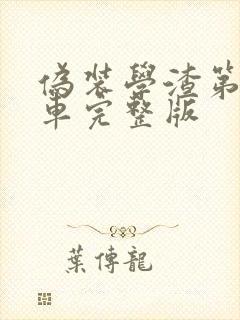 偽裝學渣第
車完整版
葉傳龍